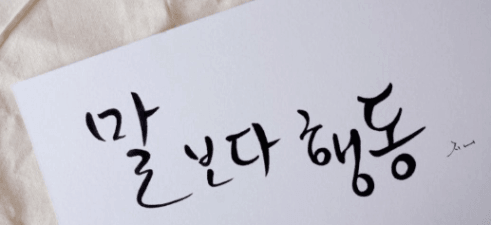 말보다 행동